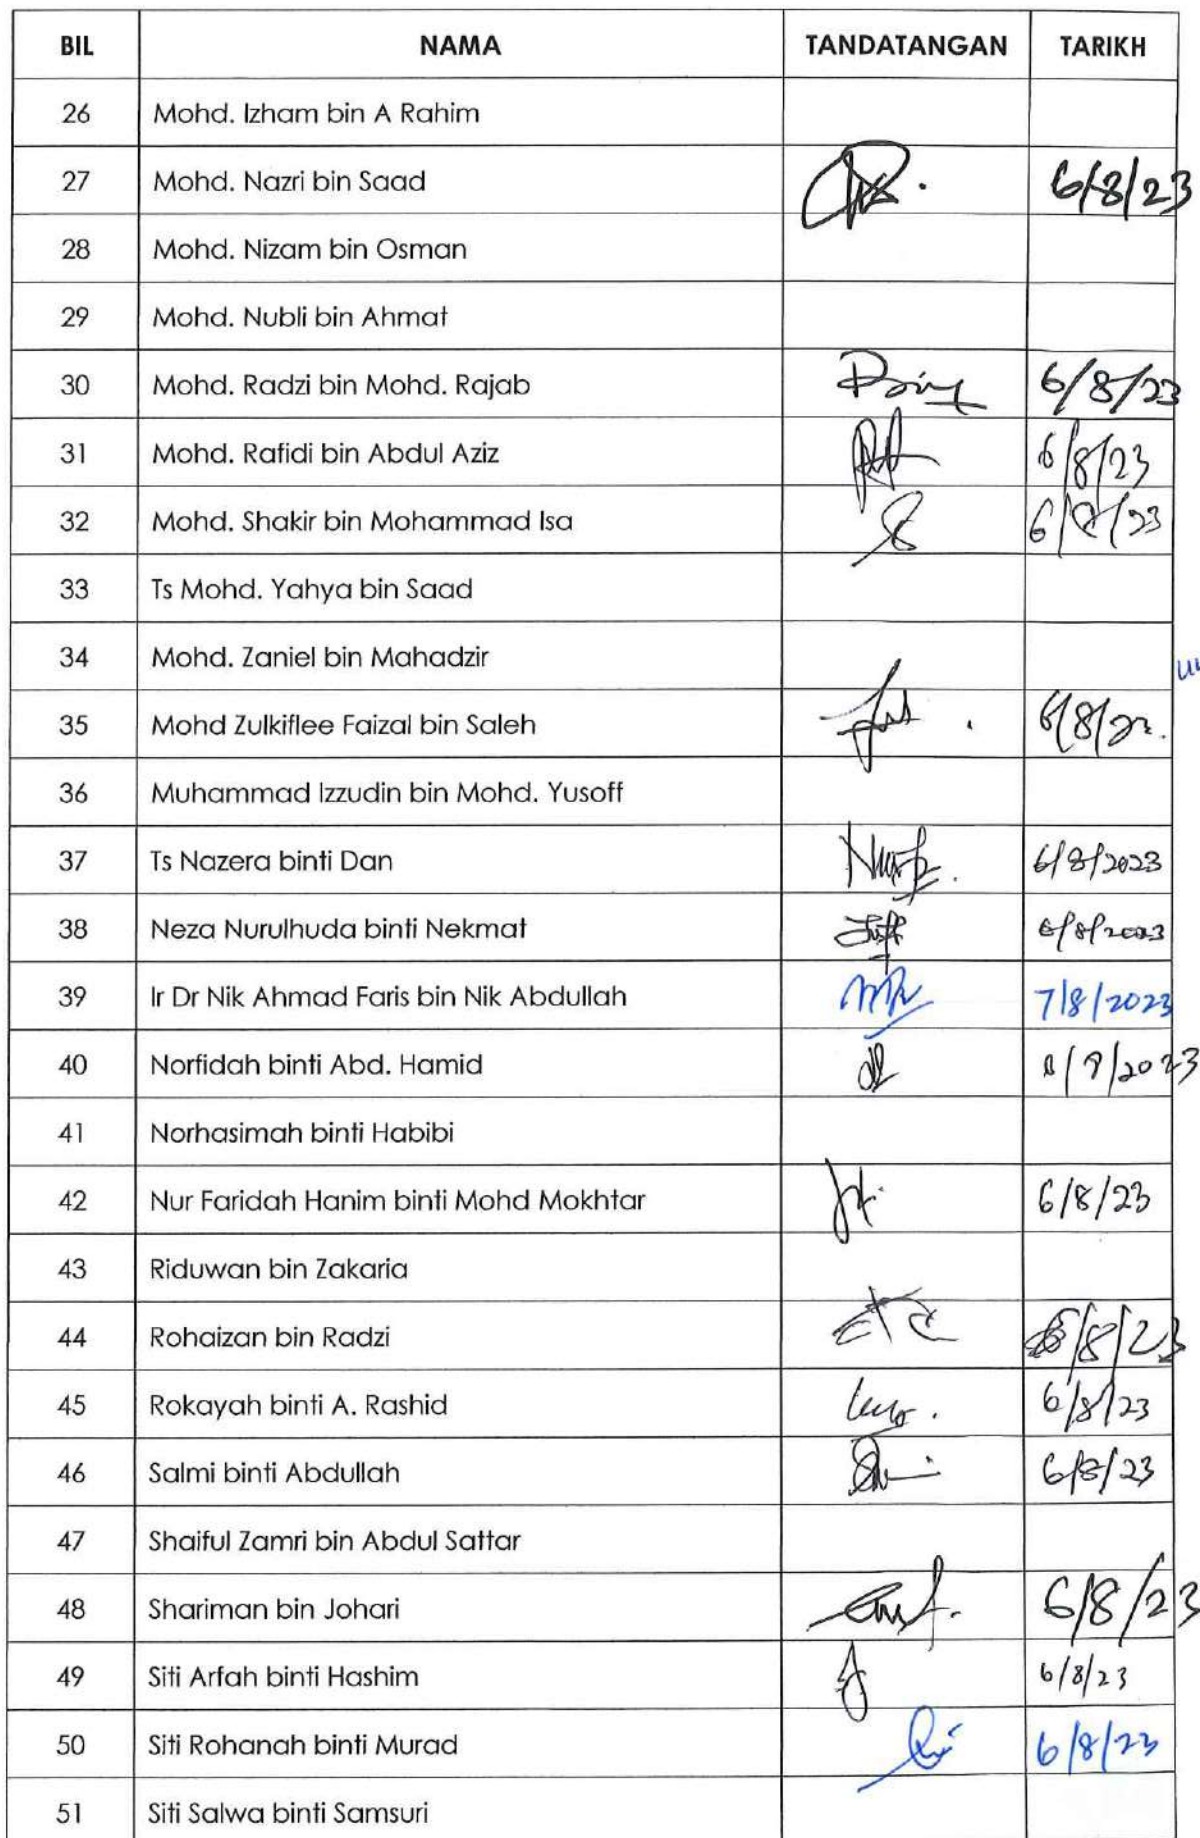 BIL NAMA TANDATANGAN TARIKH
26 Mohd. Izham bin A Rahim
27 Mohd. Nazri bin Saad 6/8/23
28 Mohd. Nizam bin Osman
29 Mohd. Nubli bin Ahmat
30 Mohd. Radzi bin Mohd. Rajab 6/8/23
31 Mohd. Rafidi bin Abdul Aziz 6/8/23
32 Mohd. Shakir bin Mohammad Isa 6/8/23
33 Ts Mohd. Yahya bin Saad
34 Mohd. Zaniel bin Mahadzir
35 Mohd Zulkiflee Faizal bin Saleh 6/8/23.
36 Muhammad Izzudin bin Mohd. Yusoff
37 Ts Nazera binti Dan 6/8/2023
38 Neza Nurulhuda binti Nekmat 6/8/2023
39 Ir Dr Nik Ahmad Faris bin Nik Abdullah 7/8/2023
40 Norfidah binti Abd. Hamid
41 Norhasimah binti Habibi
42 Nur Faridah Hanim binti Mohd Mokhtar 6/8/23
43 Riduwan bin Zakaria
44 Rohaizan bin Radzi
45 Rokayah binti A. Rashid 6/8/23
46 Salmi binti Abdullah 6/8/23
47 Shaiful Zamri bin Abdul Sattar
48 Shariman bin Johari 6/8/23
49 Siti Arfah binti Hashim 6/8/23
50 Siti Rohanah binti Murad 6/8/23
51 Siti Salwa binti Samsuri